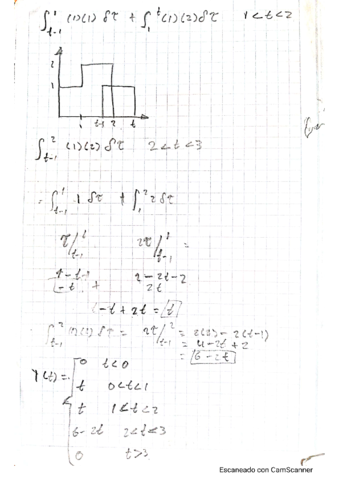 ∫_{t-1}^{1} (1)(1) δτ + ∫_{1}^{t} (1)(2) δτ    1<t<2
2
1
1 t-1 2 t
∫_{t-1}^{2} (1)(2) δτ    2<t<3
= ∫_{t-1}^{1} 1 δτ + ∫_{1}^{2} 2 δτ
-t + 2t = t
= 2τ/_{t-1}^{2} = 2(2) - 2(t-1)
= 4 - 2t + 2
= 6-2t
Y(t) =
0    t<0
t    0<t<1
t    1<t<2
6-2t    2<t<3
0    t>3
Escaneado con CamScanner